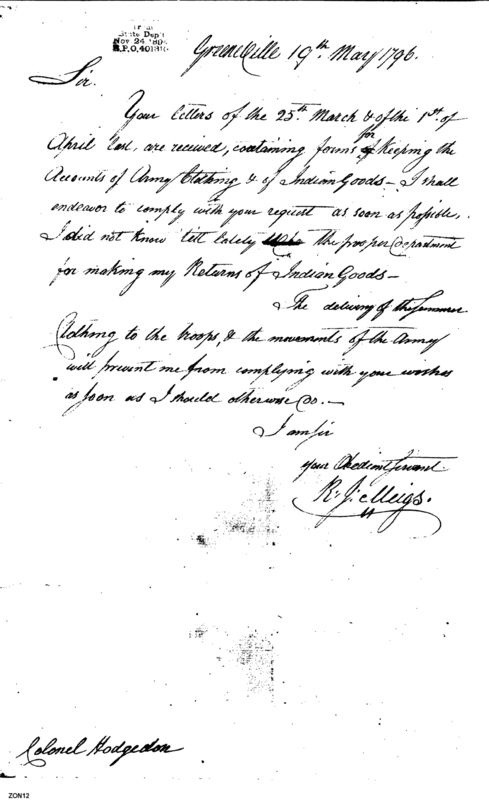 From
State Dep't
Nov 24 189
R.P.O, 401318
Greenville 19th. May 1796.
Sir.
Your letters of the 25th. March & of the 1st. of
April last, are received, containing forms for keeping the
Accounts of Army Clothing & of Indian Goods — I shall
endeavor to comply with your request as soon as possible,
I did not know till lately the proper Department
for making my Returns of Indian Goods —
The delivery of the Summer
Clothing to the troops, & the movements of the Army
will prevent me from complying with your wishes
as soon as I should otherwise do. —
I am Sir
your Obedient Servant.
R. J. Meigs.
Colonel Hodgedon
ZON12